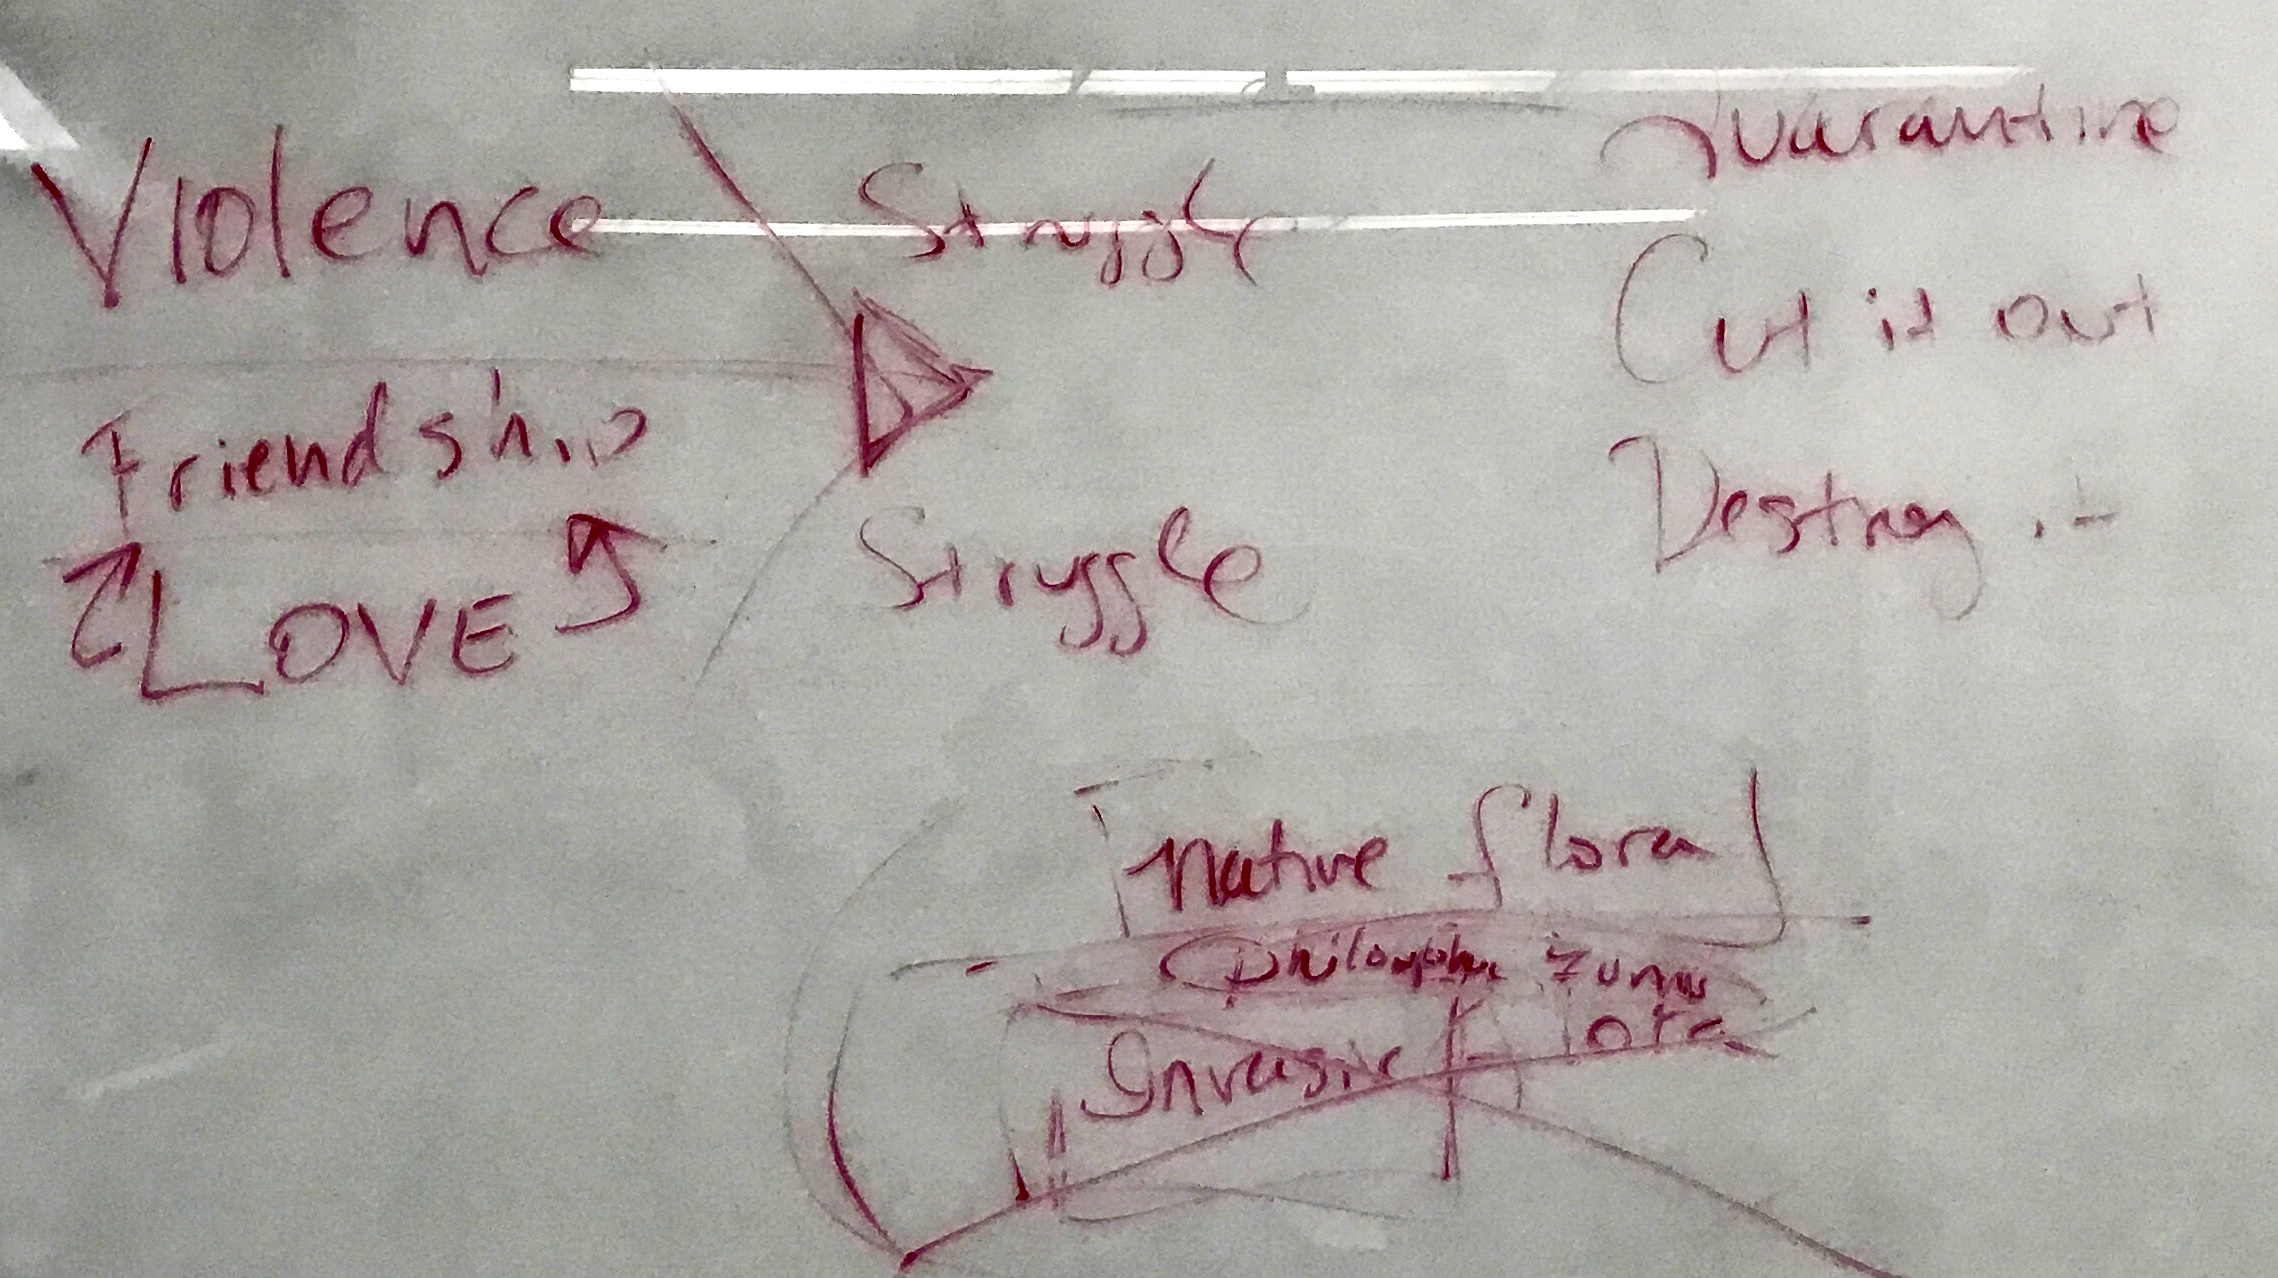 Violence
Friendship
LOVE
Struggle
Struggle
Quarantine
Cut it out
Destroy it
native flora
Invasive flora